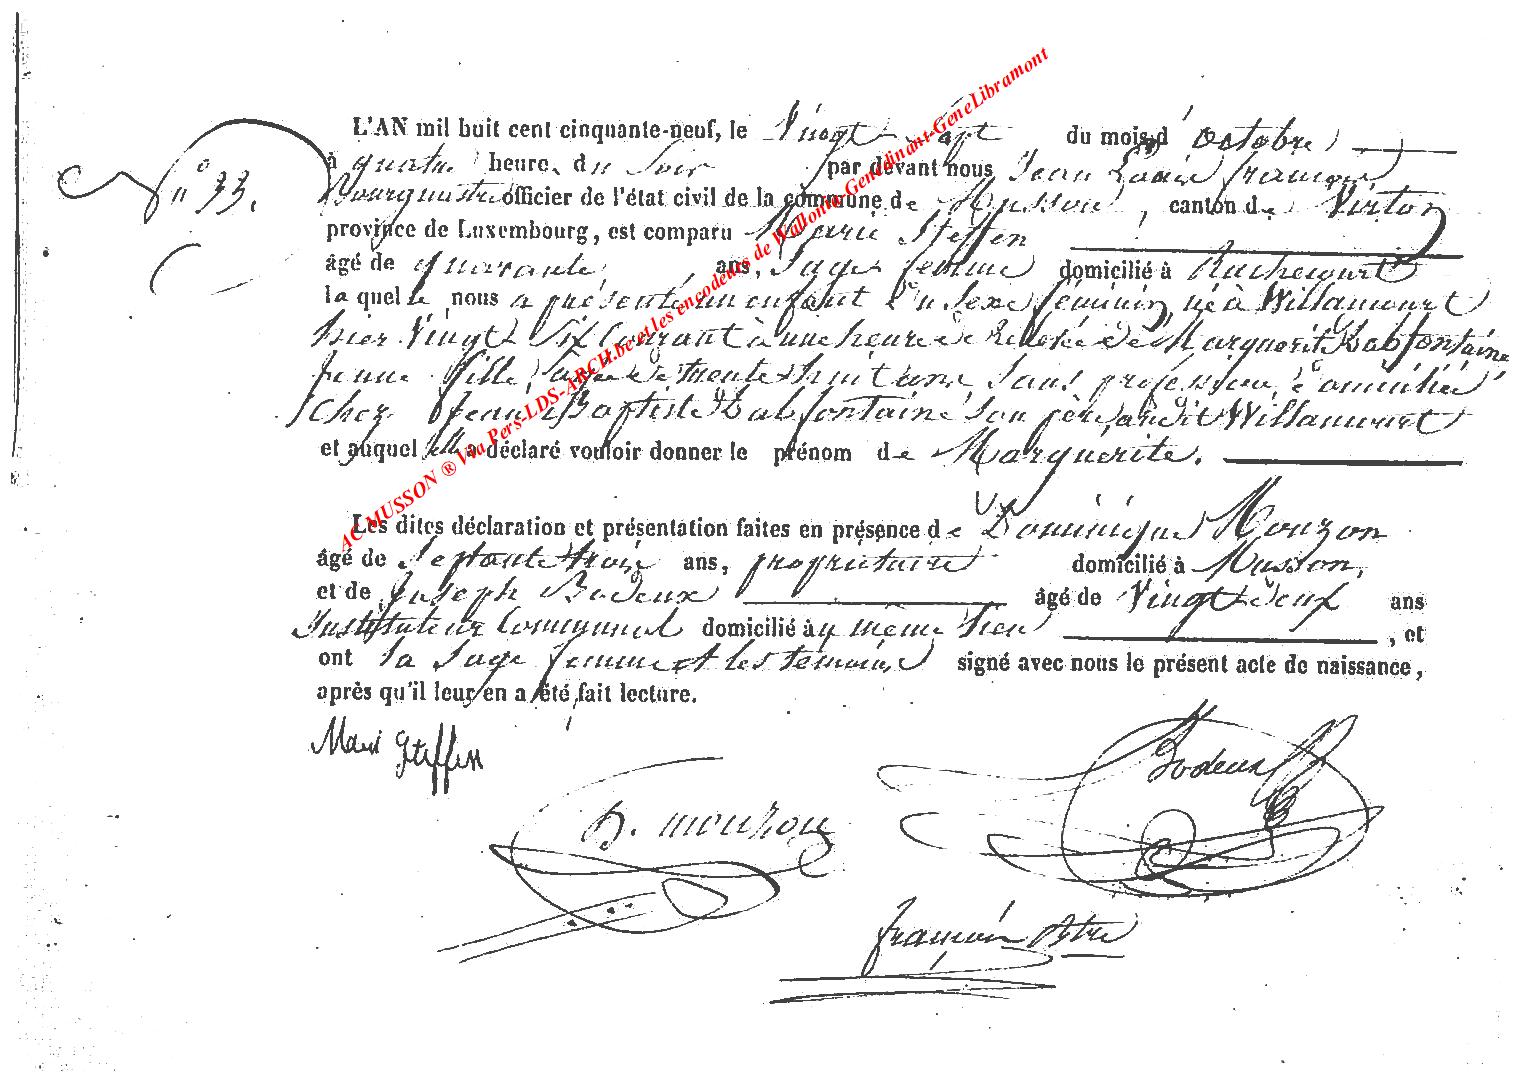 L'AN mil huit cent cinquante-neuf, le Vingt Sept du mois d'octobre
n° 33.
à quatre heure du Soir par devant nous Jean Louis françois
Bourgmestre officier de l'état civil de la commune de Musson, canton de Virton
province de Luxembourg, est comparu Marie Steffen
âgé de quarante ans, Sage femme domicilié à Rachecourt
la quelle nous a présenté un enfant du sexe féminin, né à Willancourt
hier Vingt Six Courant à une heure de relevée de Marguerite Labfontaine
jeune fille, agée de trente huit ans, sans profession domiciliée
Chez Jean Baptiste Labfontaine son père audit Willancourt
et auquel elle a déclaré vouloir donner le prénom de Marguerite.
Les dites déclaration et présentation faites en présence de Dominique Mouzon
âgé de Septante trois ans, propriétaire domicilié à Musson,
et de Joseph Bodeux âgé de Vingt deux ans
Instituteur Communal domicilié à y même lieu, et
ont la Sage femme et les témoins signé avec nous le présent acte de naissance,
après qu'il leur en a été fait lecture.
Mari Steffen
Bodeux
D. mouzon
françois
AC MUSSON ® Via Pers-LDS-ARCH.be et les encodeurs de Wallonia-Genedinant-GeneLibramont